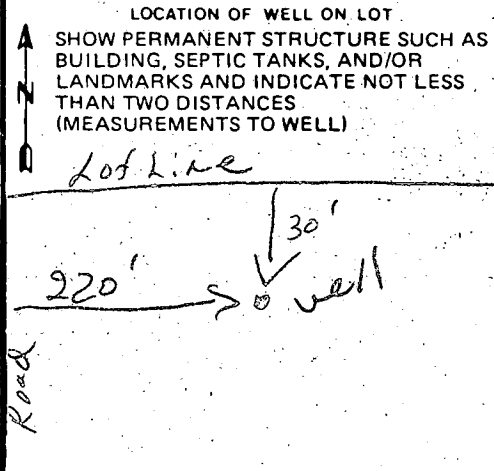 LOCATION OF WELL ON LOT
SHOW PERMANENT STRUCTURE SUCH AS
BUILDING, SEPTIC TANKS, AND/OR
LANDMARKS AND INDICATE NOT LESS
THAN TWO DISTANCES
(MEASUREMENTS TO WELL)
N
Lot Line
30'
220'
well
Road